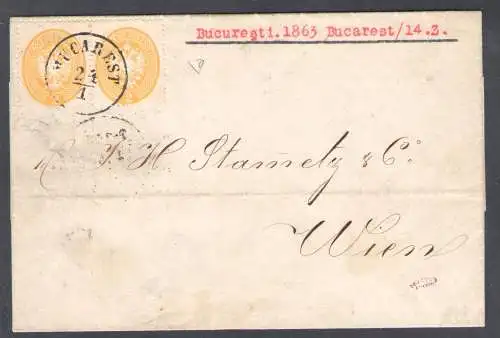 Bucureşti.1863 Bucarest/14.3.
BUCAREST
24
1
J. H. Stametz & C.
Wien